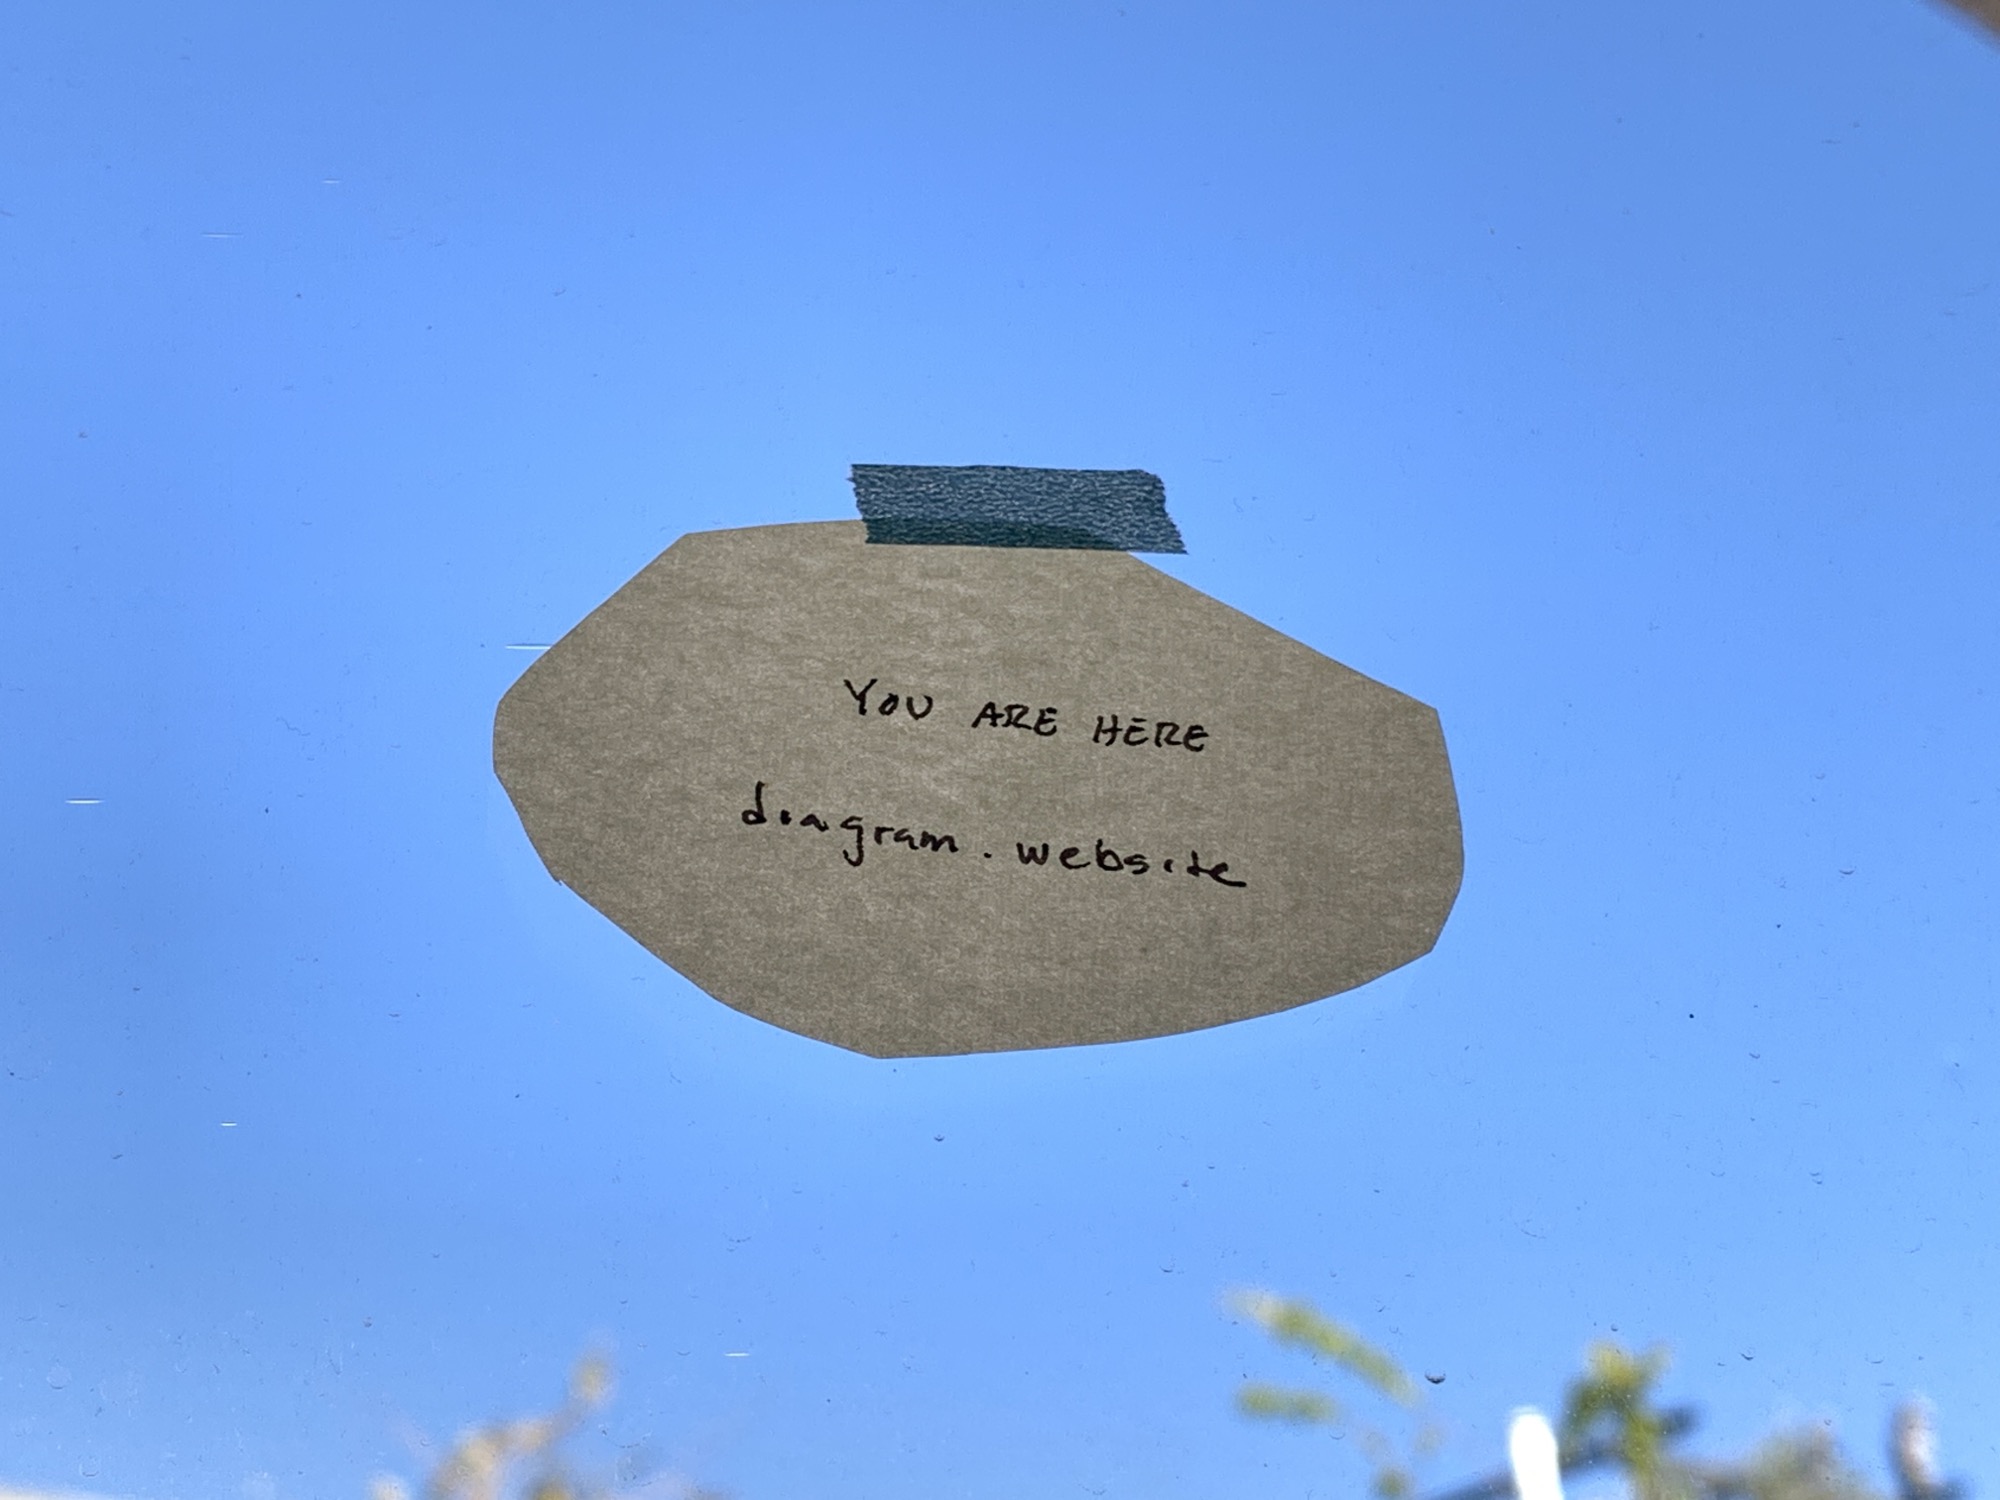 YOU ARE HERE
diagram.website